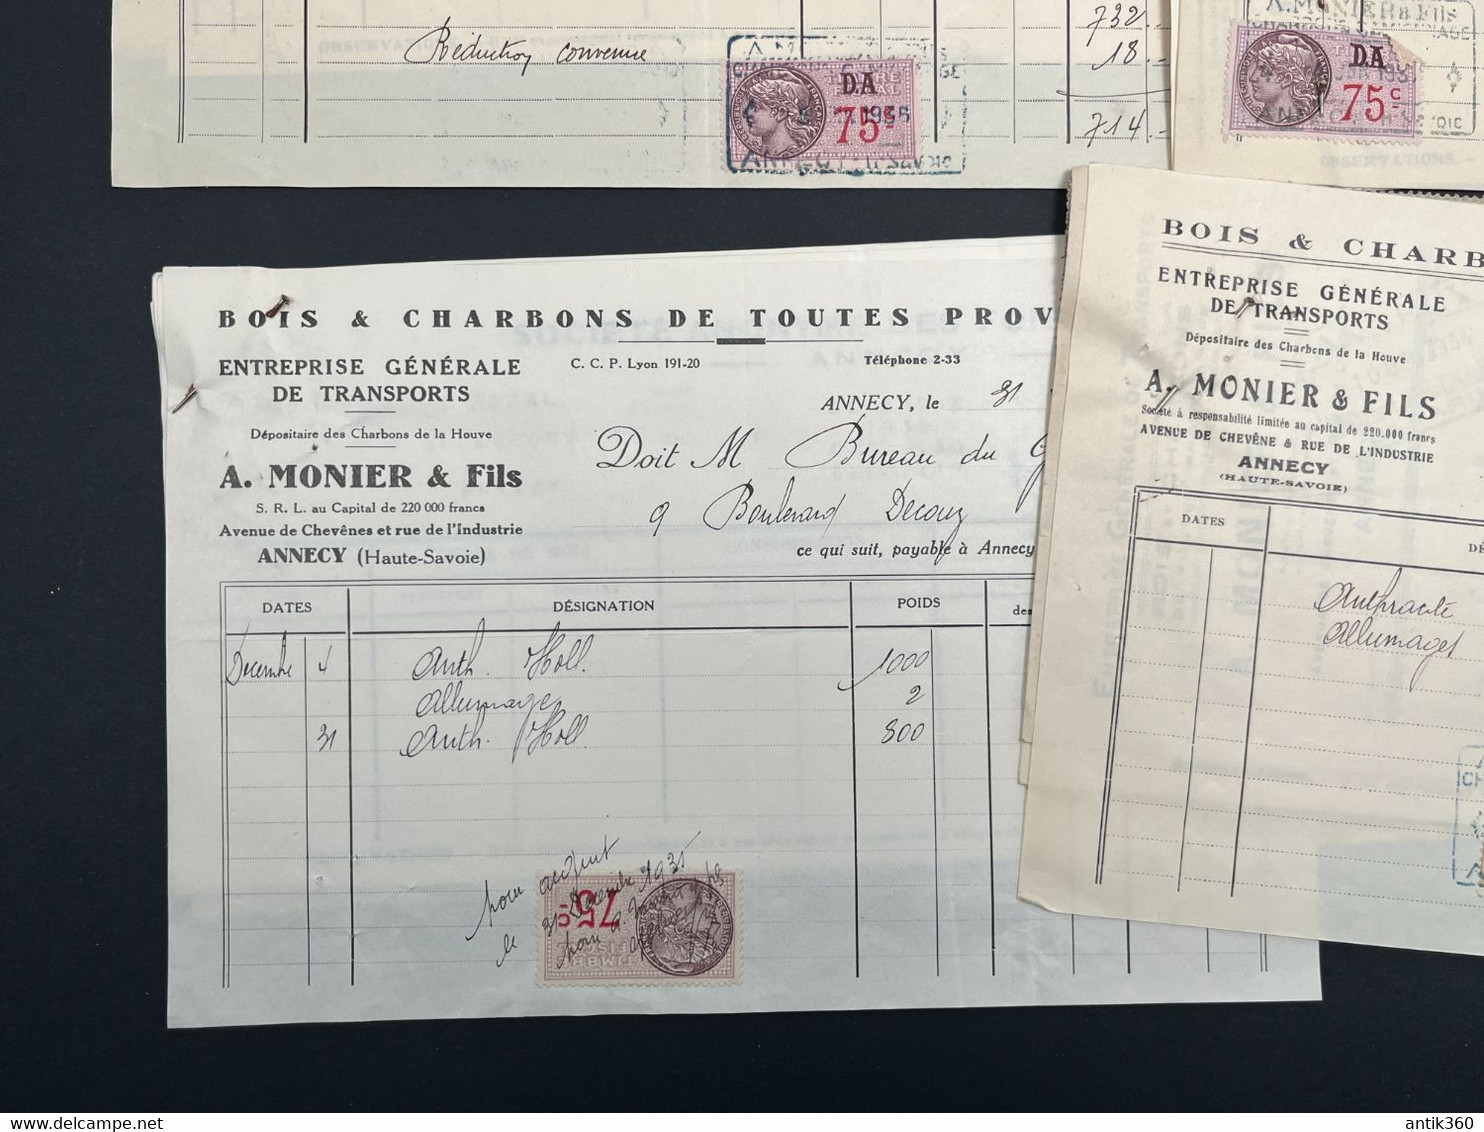 732.-
Réduction convenue 18.-
714.-
DA
75c
1936
A. MONIER & Fils
DA
75c
OBSERVATIONS.
BOIS & CHARBONS DE TOUTES PROV
ENTREPRISE GÉNÉRALE
DE TRANSPORTS
C. C. P. Lyon 191-20
Téléphone 2-33
ANNECY, le 31
Dépositaire des Charbons de la Houve
A. MONIER & Fils
S. R. L. au Capital de 220 000 francs
Avenue de Chevênes et rue de l'Industrie
ANNECY (Haute-Savoie)
Doit M Bureau du
9 Boulevard Decouz
ce qui suit, payable à Annecy
DATES DÉSIGNATION POIDS des
Decembre 4 Anth. Holl. 1000
Allumage 2
31 Anth. Holl. 800
pour acquit
le 31 Decembre 1935
75c
TIMBRE
FISCAL
BOIS & CHARB
ENTREPRISE GÉNÉRALE
DE TRANSPORTS
Dépositaire des Charbons de la Houve
A. MONIER & FILS
Société à responsabilité limitée au capital de 220.000 francs
AVENUE DE CHEVÊNE & RUE DE L'INDUSTRIE
ANNECY
(HAUTE-SAVOIE)
DATES DÉ
Anthracite
Allumages
antik360